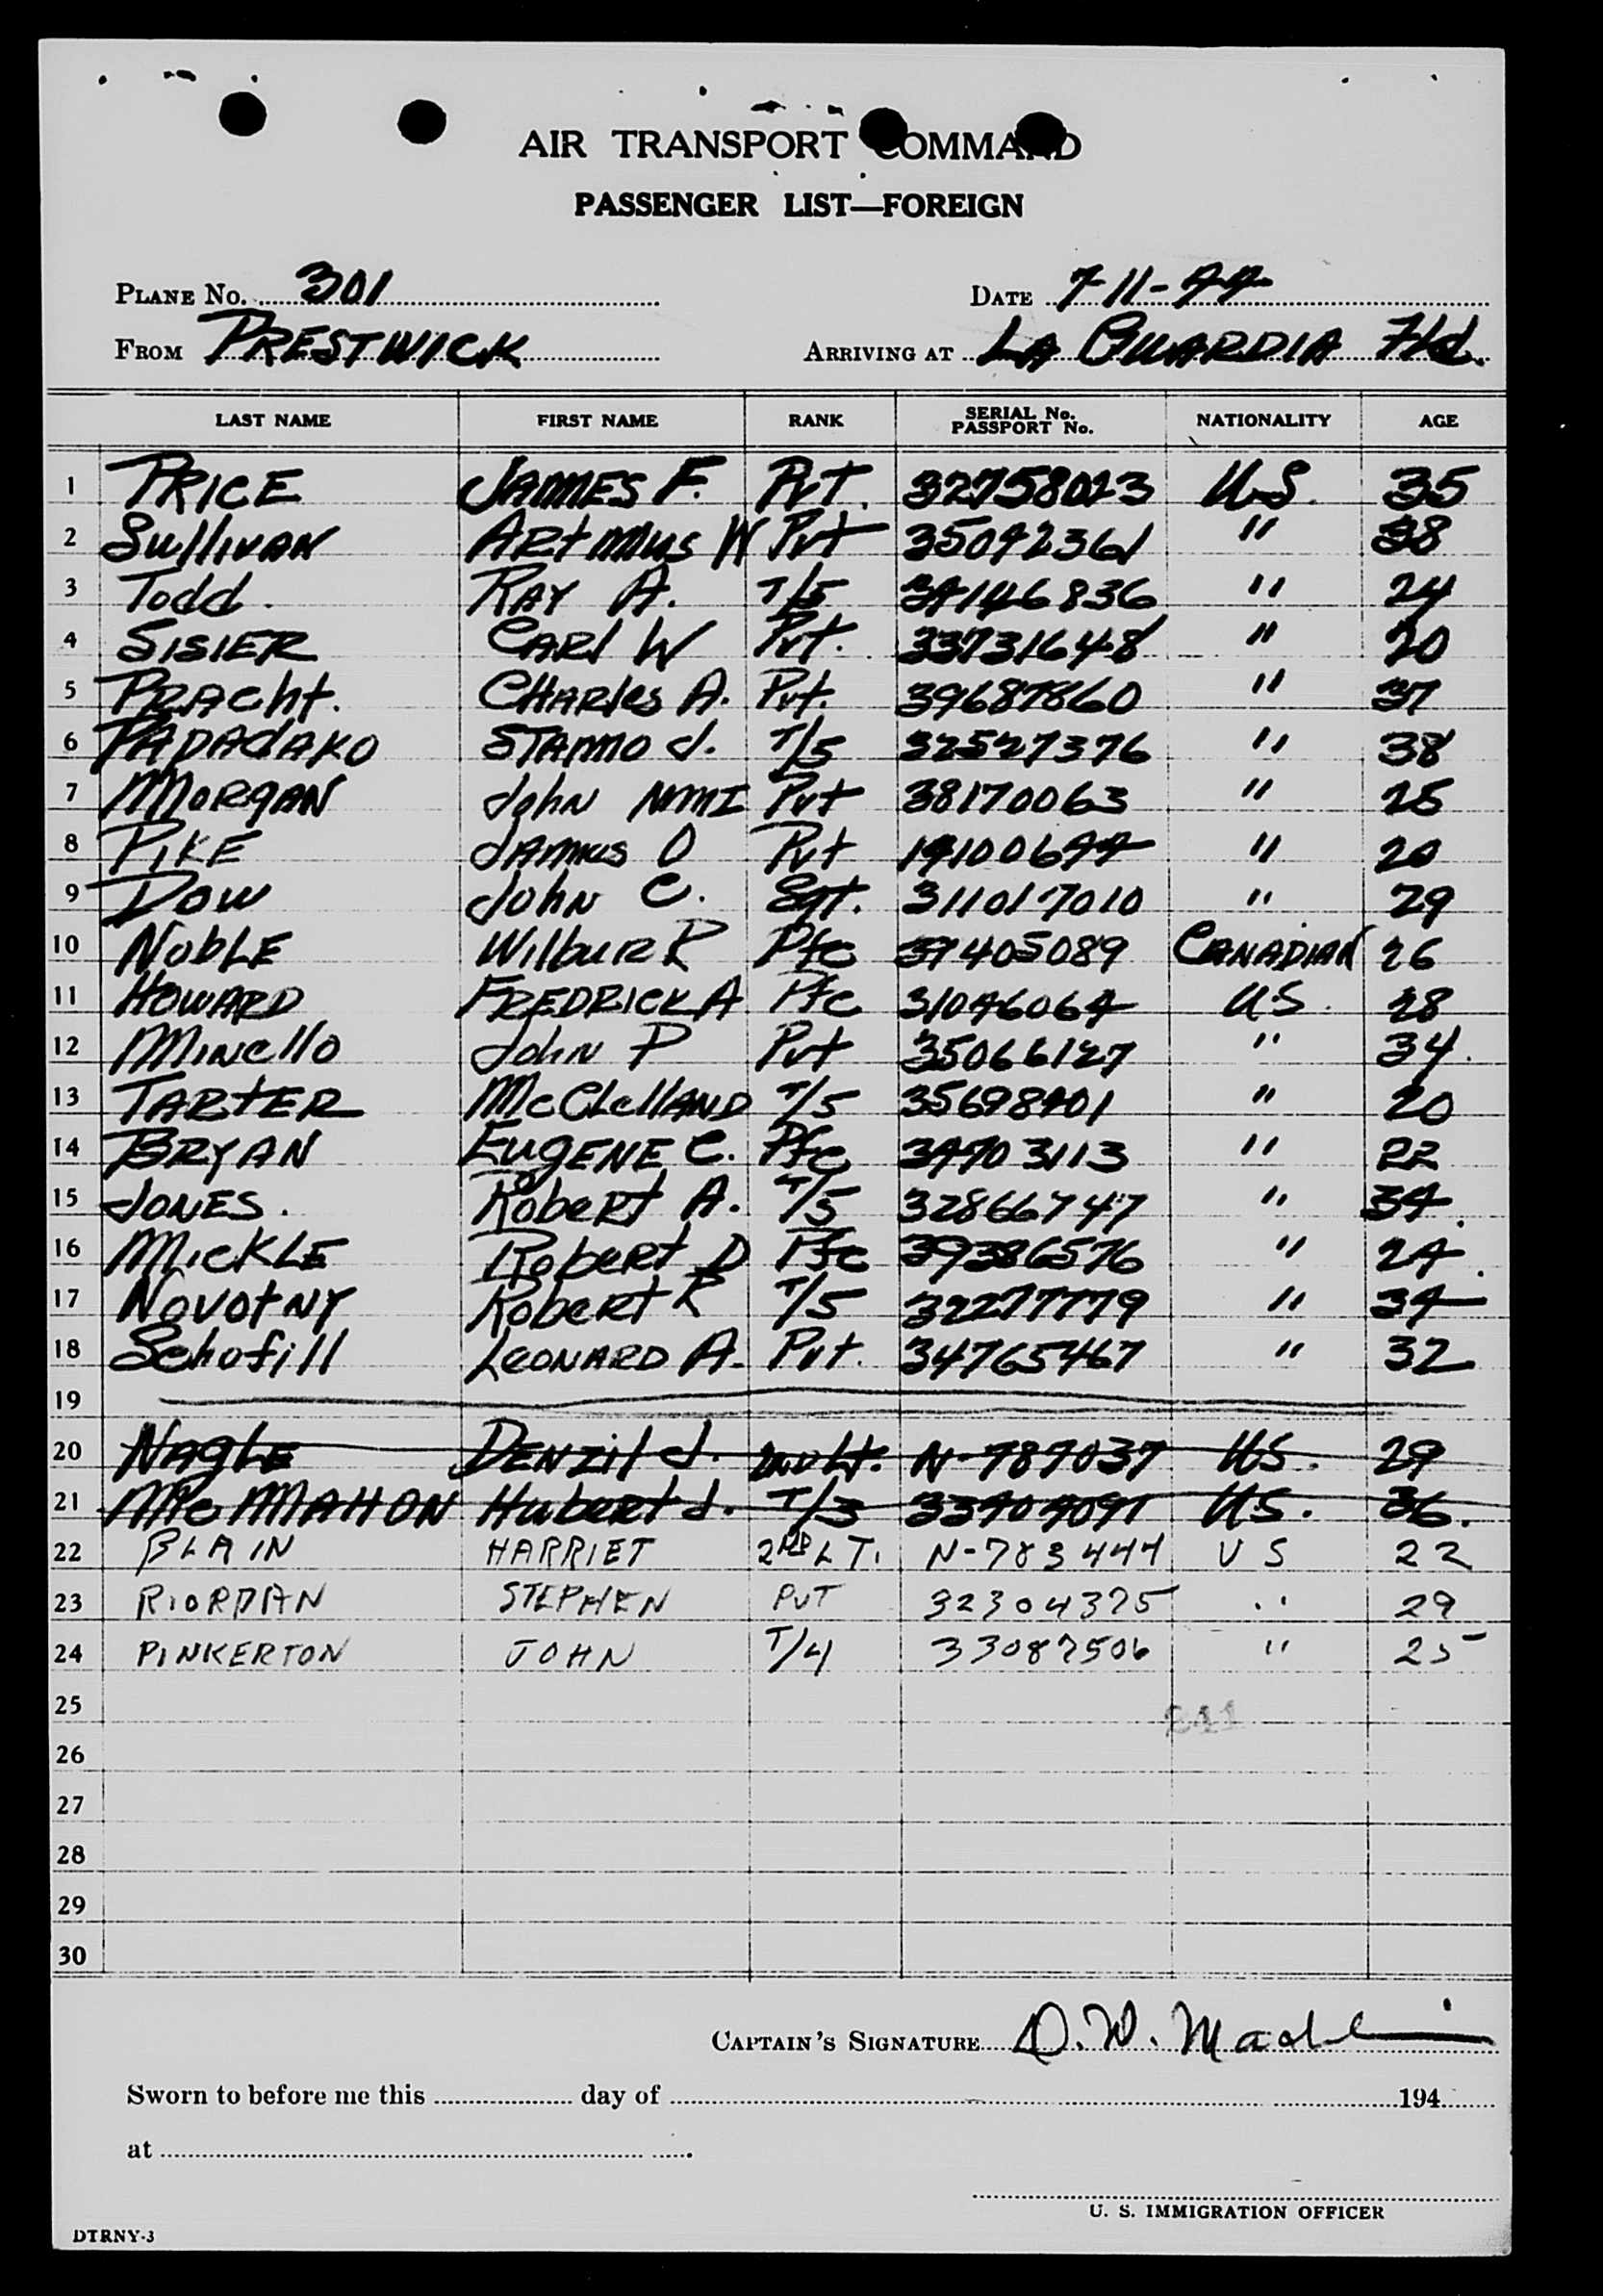 AIR TRANSPORT COMMAND
PASSENGER LIST—FOREIGN
PLANE No. 301 DATE 7-11-44
FROM PRESTWICK ARRIVING AT LA GUARDIA Fld.
LAST NAME FIRST NAME RANK SERIAL No. PASSPORT No. NATIONALITY AGE
1 PRICE JAMES F. Pvt. 32758023 U.S. 35
2 SullIVAN ARtmus W Pvt 35092361 " 38
3 Todd. RAY A. T/5 34146836 " 24
4 SISIER CARl W Pvt. 33731648 " 20
5 PRAcht. CHARles A. Pvt. 39687860 " 37
6 PAPAdAKO STAMO J. T/5 32527376 " 38
7 MORgAN John NMI Pvt 38170063 " 25
8 PIKE JAmes O Pvt 14100644 " 20
9 Dow John C. Sgt. 311017010 " 29
10 NobLE WilbuR R Pfc 37405089 CANADIAN 26
11 HOWARD FREDRICK A Pfc 31046064 US. 28
12 MINello John P Pvt 35066127 " 34.
13 TARtER McClellAND T/5 35698401 " 20
14 BRYAN EugENE C. Pfc 34703113 " 22
15 JONES. RobeRt A. T/5 32866747 " 34.
16 MIcKLE RobeRt D Pfc 39386576 " 24.
17 NovotNY RobeRt R T/5 32277779 " 34
18 Schofill LEONARD A. Pvt. 34765467 " 32
19
20 NAgLE DENZil J. 2ND Lt. N-787037 US. 29
21 Mc MAHON HubeRt J. T/3 33404091 US. 36.
22 BLAIN HARRIET 2ND LT. N-783444 US 22
23 RIORDAN STEPHEN PVT 32304375 " 29
24 PINKERTON JOHN T/4 33087506 " 25
25
26
27
28
29
30
CAPTAIN'S SIGNATURE D. W.
Sworn to before me this day of 194
at
U. S. IMMIGRATION OFFICER
DTRNY-3